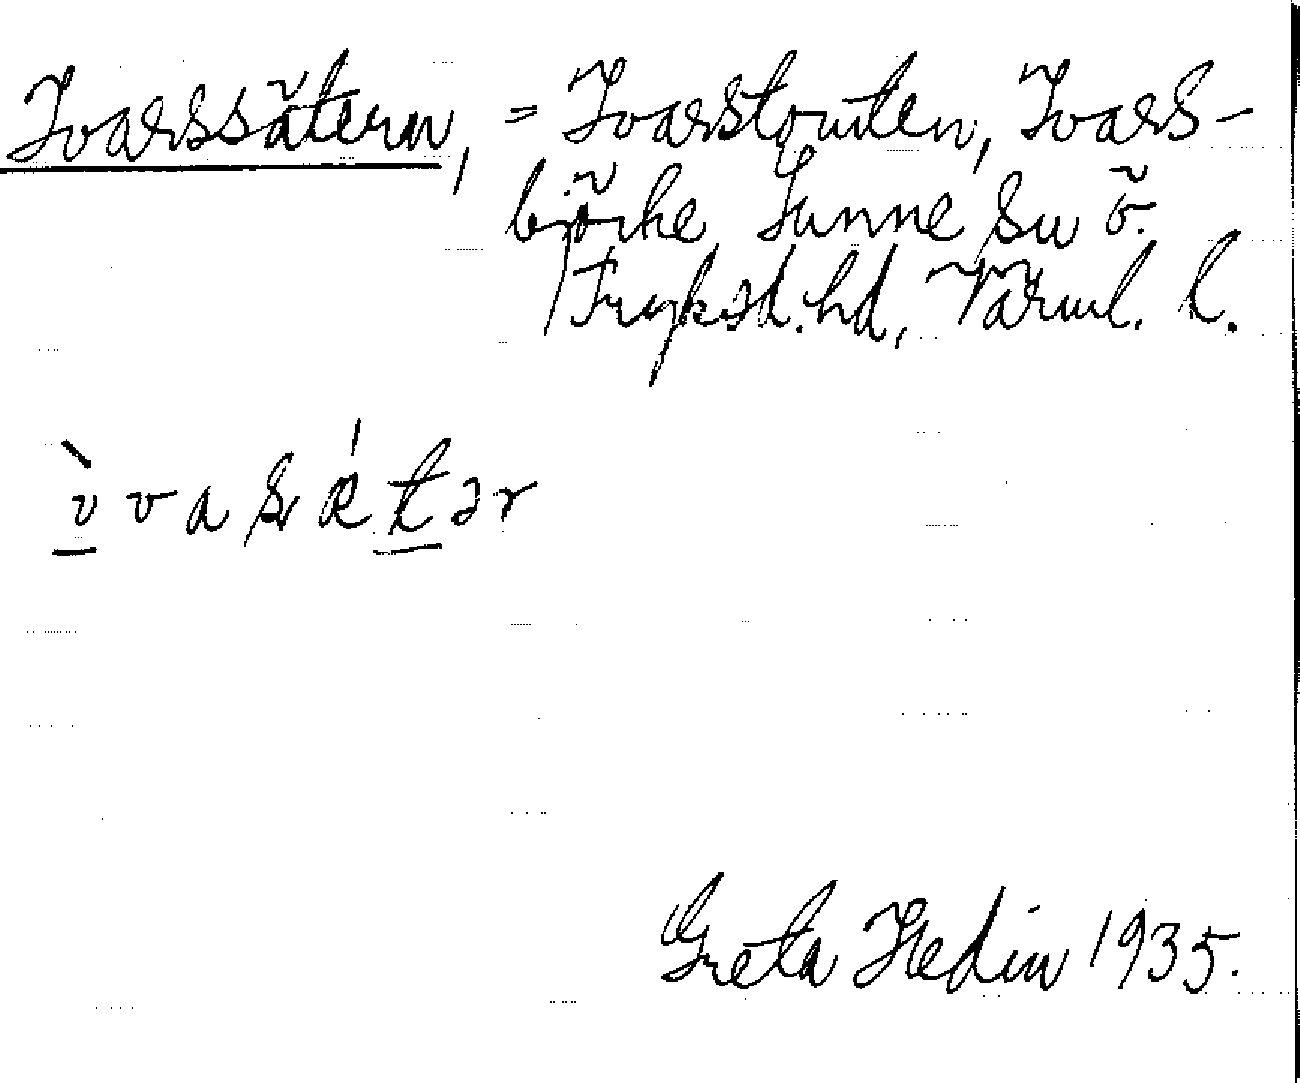 Ivarssätern, = Ivarstomten, Ivars-
björke, Sunne sn Ö.
Fryksd. hd, Värml. l.
ì v a s ǽ t ə r
Greta Hedin 1935.